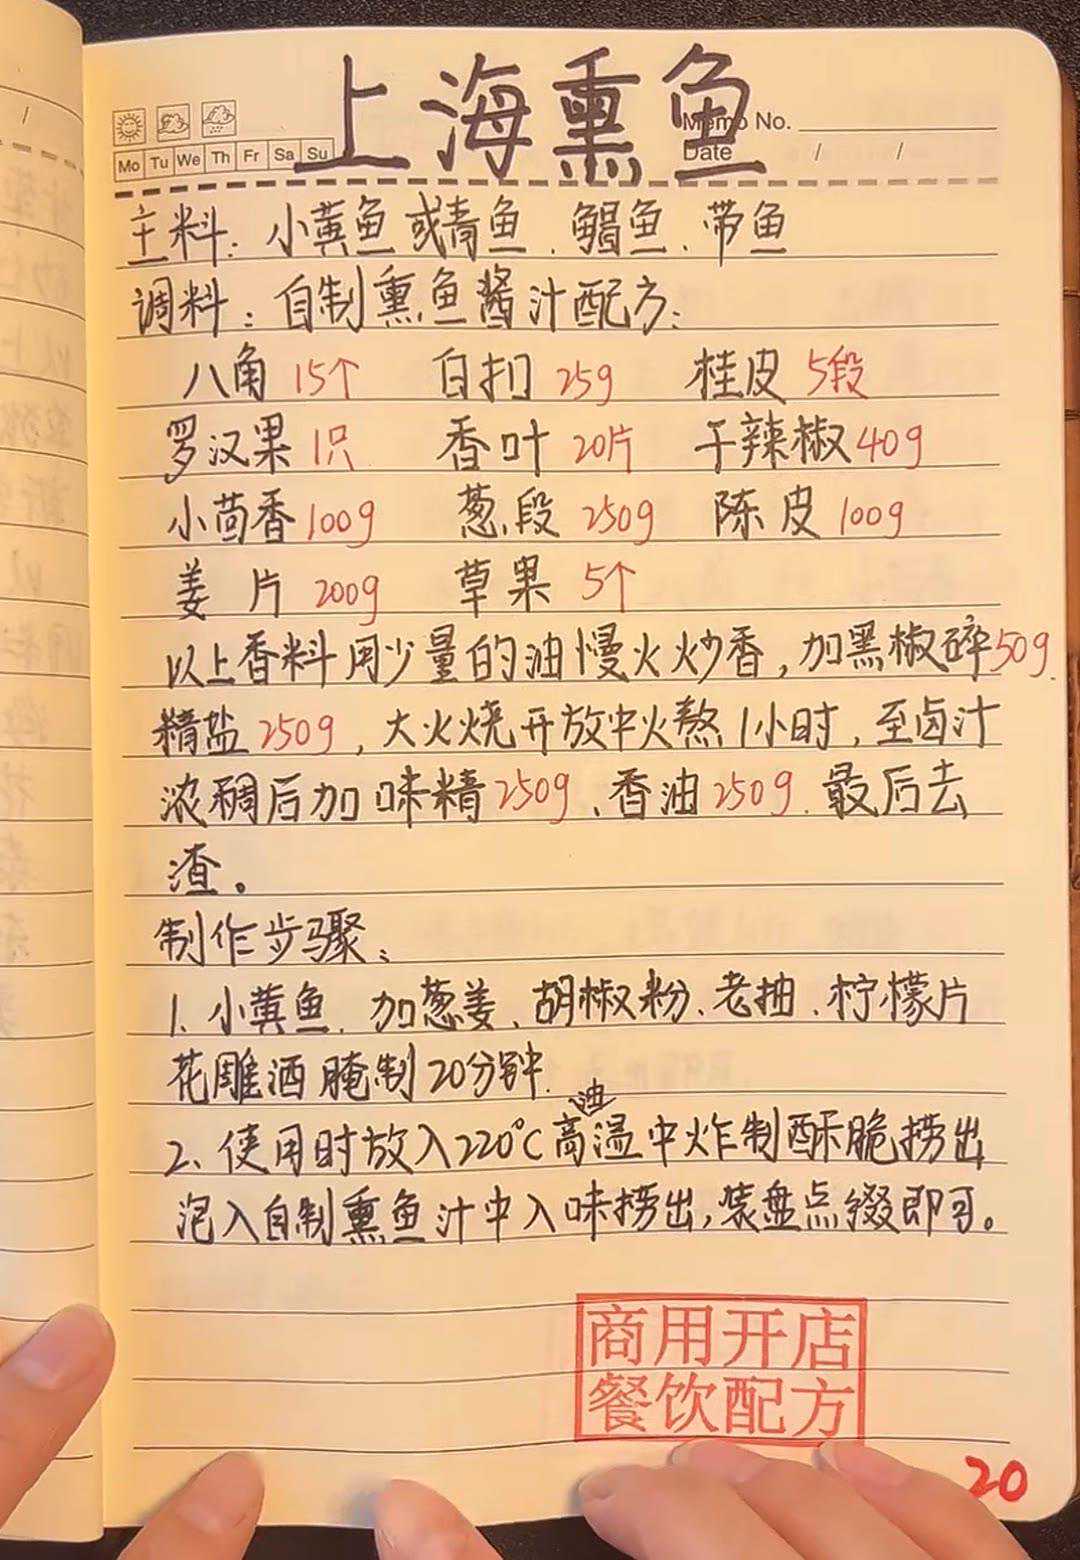 上海熏鱼
Memo No.
Mo Tu We Th Fr Sa Su
Date / /
主料：小黄鱼或青鱼、鲳鱼、带鱼
调料：自制熏鱼酱汁配方：
八角 15个 白扣 25g 桂皮 5段
罗汉果 1只 香叶 20片 干辣椒 40g
小茴香 100g 葱段 250g 陈皮 100g
姜片 200g 草果 5个
以上香料用少量的油慢火炒香，加黑椒碎50g.
精盐 250g，大火烧开放中火熬1小时，至卤汁
浓稠后加味精250g、香油250g.最后去
渣。
制作步骤：
1、小黄鱼、加葱姜、胡椒粉、老抽、柠檬片
花雕酒腌制20分钟.
2、使用时放入220℃高温油中炸制酥脆捞出
泡入自制熏鱼汁中入味捞出，装盘点缀即可。
商用开店
餐饮配方
20